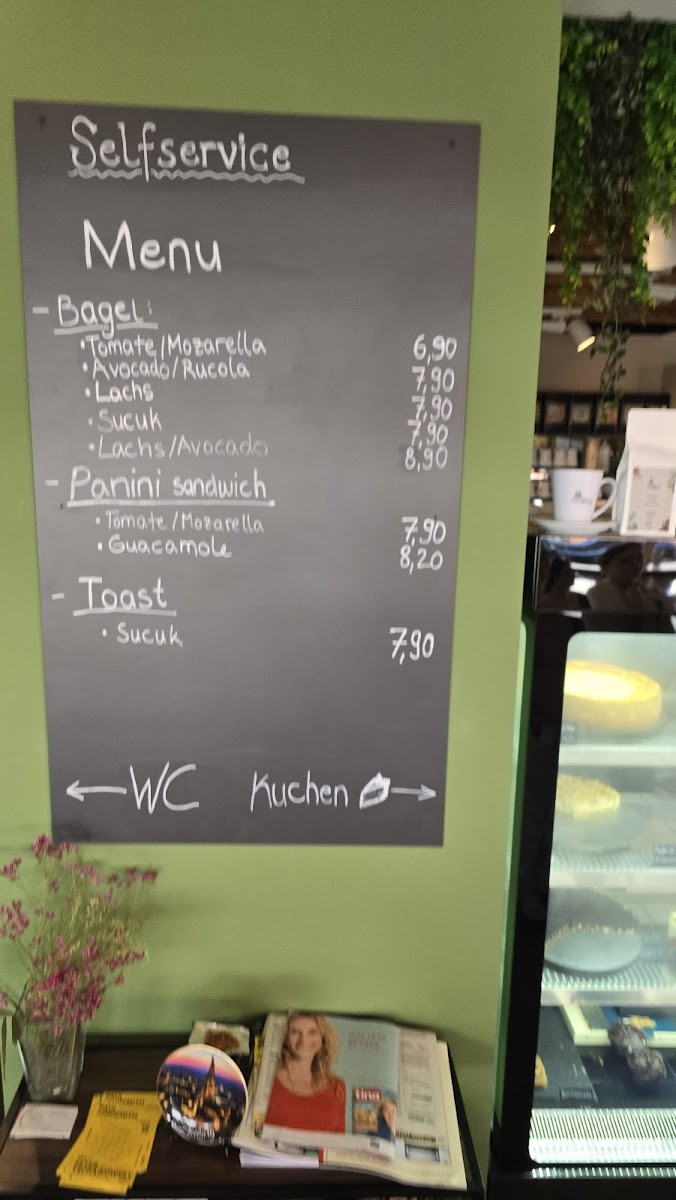 Selfservice
Menu
- Bagel:
• Tomate/Mozarella 6,90
• Avocado/Rucola 7,90
• Lachs 7,90
• Sucuk 7,90
• Lachs/Avocado 8,90
- Panini sandwich
• Tomate/Mozarella 7,90
• Guacamole 8,20
- Toast
• Sucuk 7,90
← WC Kuchen →
tina